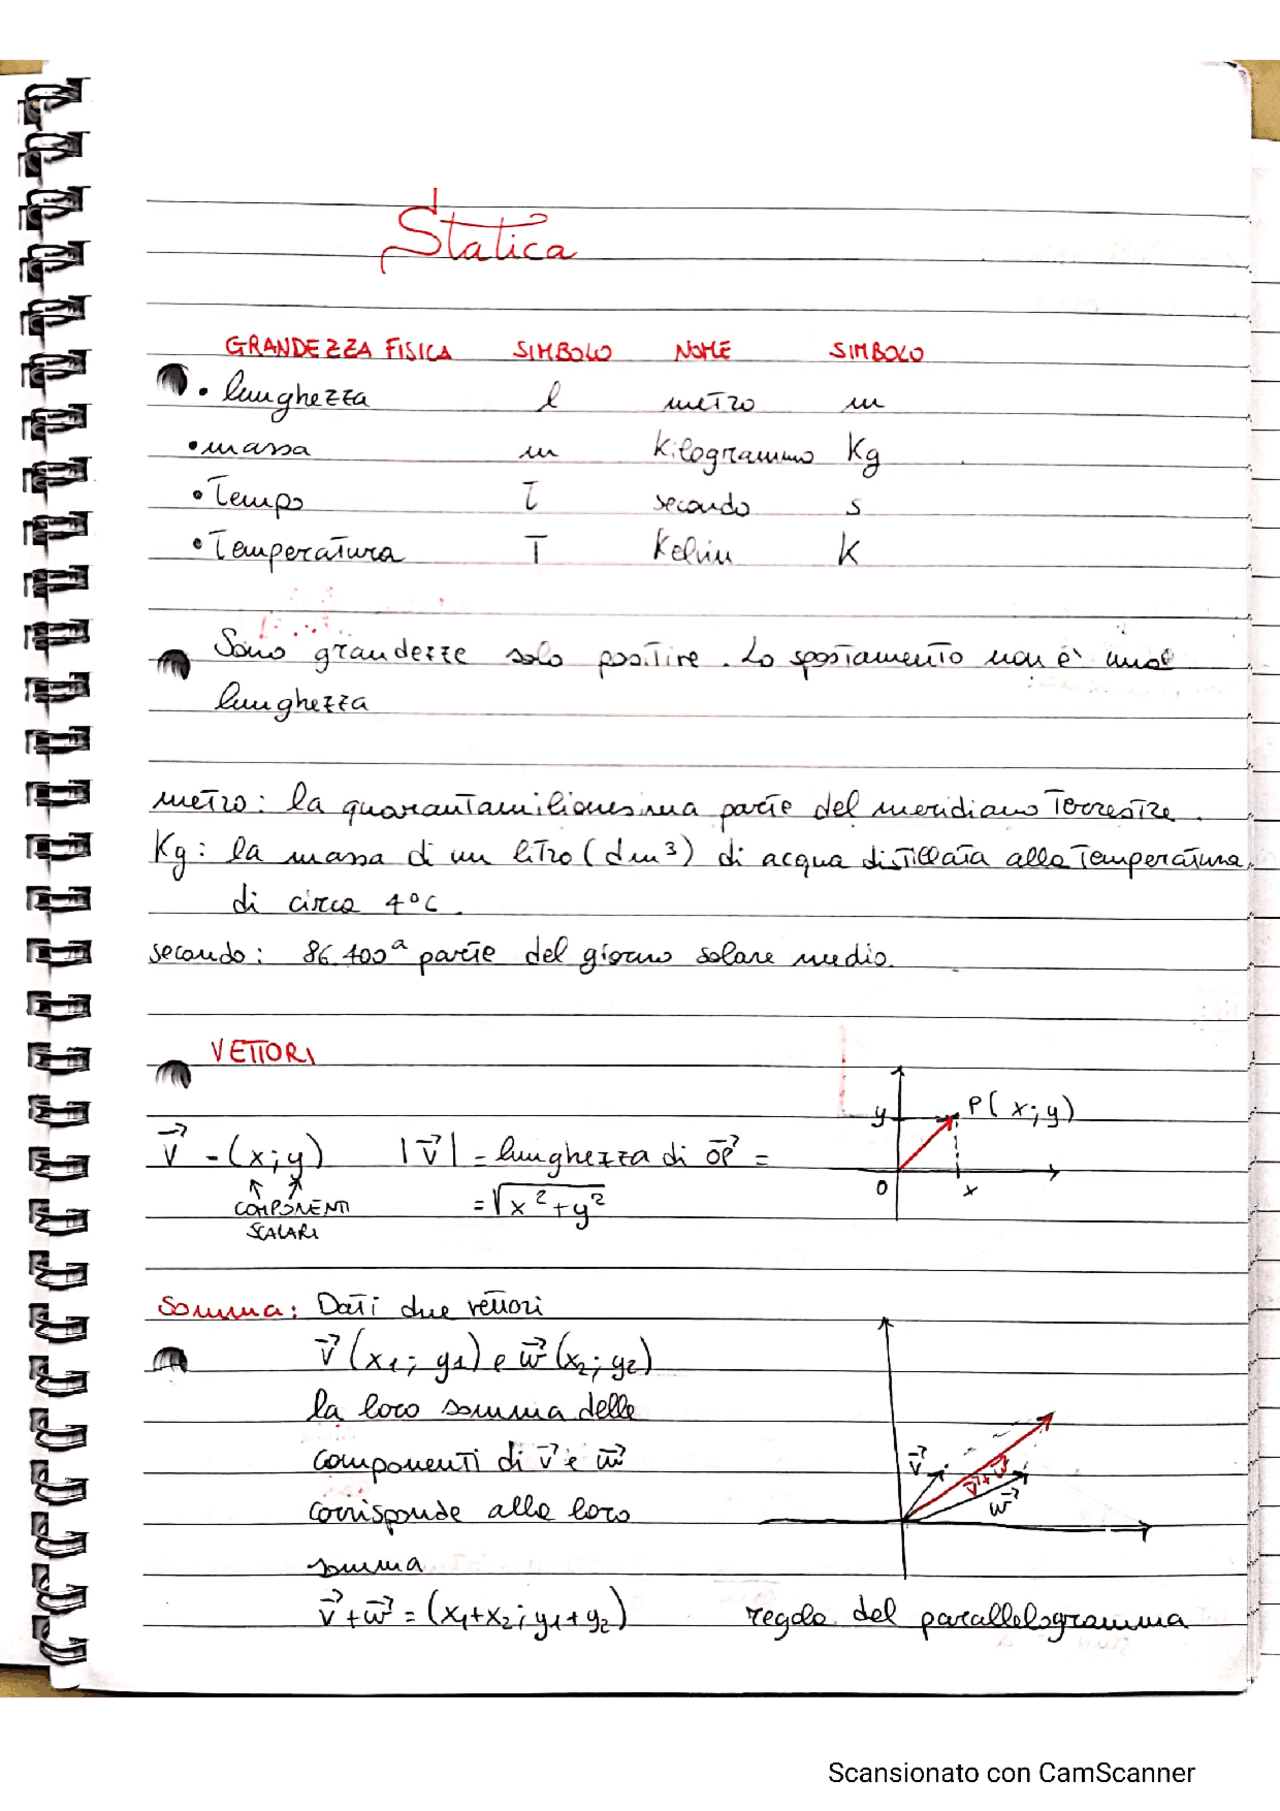 Statica
GRANDEZZA FISICA SIMBOLO NOME SIMBOLO
• lunghezza l metro m
• massa m Kilogrammo Kg
• Tempo T secondo s
• Temperatura T Kelvin K
Sono grandezze solo positive. Lo spostamento non è una
lunghezza
metro: la quarantamilionesima parte del meridiano Terrestre.
Kg: la massa di un litro (dm³) di acqua distillata alla Temperatura
di circa 4°C.
secondo: 86.400ª parte del giorno solare medio.
VETTORI
y P(x;y)
V⃗ = (x;y) |V⃗| = lunghezza di OP⃗ =
0 x
COMPONENTI = √x²+y²
SCALARI
Somma: Dati due vettori
V⃗(x1; y1) e w⃗(x2; y2)
la loro somma delle
componenti di v⃗ e w⃗
corrisponde alla loro
somma
V⃗ V⃗+w⃗ w⃗
V⃗+w⃗ = (x1+x2; y1+y2) regola del parallelogramma
Scansionato con CamScanner